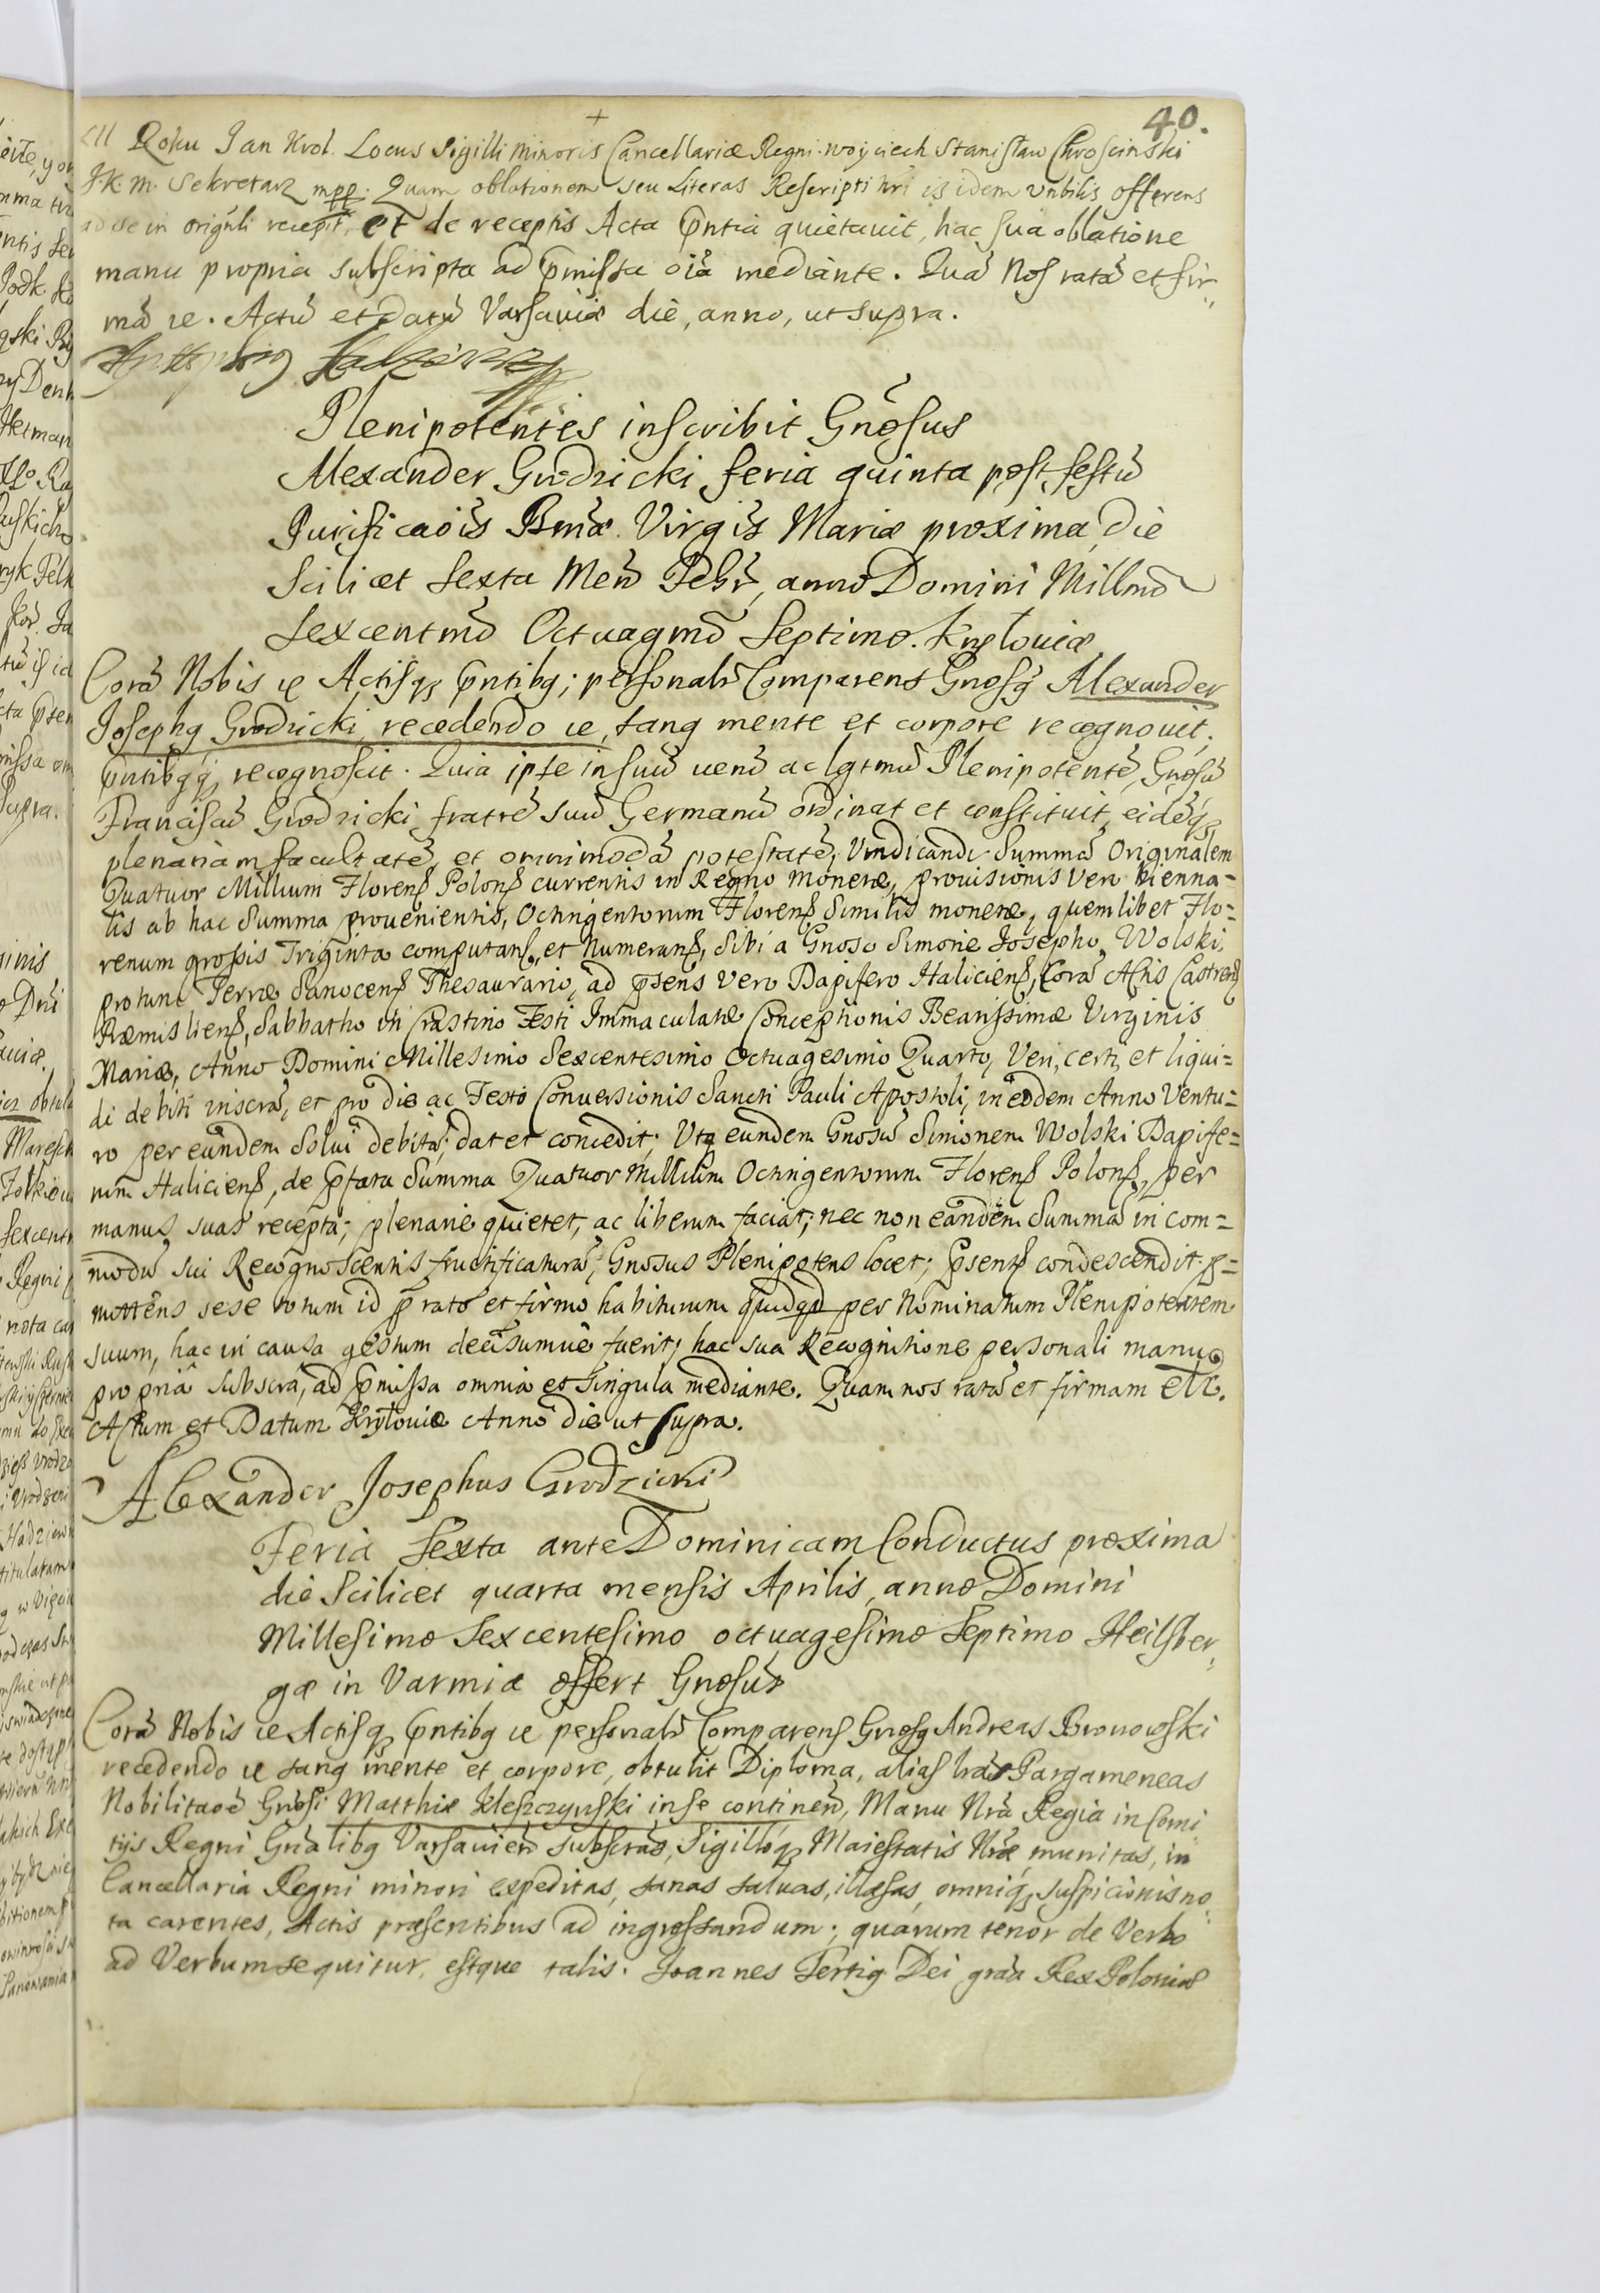 40.
XII Roku Jan Krol. Locus Sigilli Minoris Cancellariæ Regni. Woyciech Stanisław Chroscinski
J.K.M. Sekretarz mpp. Quam oblationem seu Literas Rescripti nri is idem Vnbilis offerens
ad se in orignli recepit, et de receptis Acta pntia quietauit, hac sua oblatione
manu propria subscripta ad pmissa oia mediante. Quā Nos ratā et fir„
mā &c. Actū et datū Varsauiæ die, anno, ut supra.
Plenipotentes inscribit Gnosus
Alexander Grodzicki feria quinta post festū
Purificaōis Bmæ Virgis Mariæ proxima, die
Scilicet sexta Men Febr, anno Domini Millmō
Sexcentmō Octuagmō Septimo. Kryłoviæ
Corā Nobis &c Actisq pntibq; personalr Comparens Gnosq Alexander
Josephq Grodzicki, recedendo &c, sanq mente et corpore recognouit,
pntibqq recognoscit. Quia ipse in suū uerū ac lgtmū Plenipotentē, Gnosū
Franciscū Grodzicki fratrē suū Germanū ordinat et constituit, eidēq
plenariam facultatē, et omnimodā potestatē, Vindicandi Summā Originalem
Quatuor Millium Florenß Polonß currentis in Regno monetæ, prouisionis vero bienna=
lis ab hac Summa prouenientis, Octingentorum Florenß Similis monetæ, quemlibet Flo=
renum grossis Triginta computanß, et Numeranß, Sibi a Gnoso Simone Josepho Wolski,
protunc Terræ Sanocenß Thesaurario, ad psens Vero Dapifero Halicienß, Corā Actis Castrenß
Præmislienß, Sabbatho in Crastino Festi Immaculatæ Conceptionis Beatissimæ Virginis
Mariæ, Anno Domini Millesimo Sexcentesimo Octuagesimo Quarto, Veri, certi, et liqui=
di debiti inscrā, et pro die ac Festo Conuersionis Sancti Pauli Apostoli, in eodem Anno Ventu=
ro per eundem Solui debitā; dat et concedit; Vtq eundem Gnosū Simonem Wolski Dapife=
rum Halicienß, de pfata Summa Quatuor Millium Octingentorum Florenß Polonß, per
manus suas recepta; plenarie quietet, ac liberum faciat; nec non eandem Summā in com=
modū sui Recognoscentis fructificaturā, Gnosus Plenipotens locet; psentß condescendit. p=
mottens sese totum id p rato et firmo habiturum quidqd per Nominatum Plenipotentem
suum, hac in causa gestum decisumue fuerit; hac sua Recognitione personali manu
propria subscra, ad pmissa omnia et Singula mediante. Quam nos ratā et firmam etc.
Actum et Datum Kryłouiæ Anno die ut supra.
Alexander Josephus Grodzicki
Feria Sexta ante Dominicam Conductus proxima
die Scilicet quarta mensis Aprilis, anno Domini
Millesimo Sexcentesimo octuagesimo Septimo Heilsber„
gæ in Varmia offert Gnosus
Corā Nobis &c Actisq pntibq &c personalr Comparens Gnosq Andreas Bronowski
recedendo &c sanq mente et corpore, obtulit Diploma, alias lras Pargameneas
Nobilitaoē Gnosi Matthiæ Kleszczynski in se continen, Manu Nrā Regia in Comi„
tijs Regni Gnalibq Varsauien subscras, Sigilloq Maiestatis Nræ munitas, in
Cancellaria Regni minori expeditas, sanas saluas, illæsas, omniq suspicionis no„
ta carentes, Actis præsentibus ad ingrossandum; quarum tenor de Verbo
ad Verbum sequitur, estque talis. Joannes Tertiq Dei gratia Rex Poloniæ